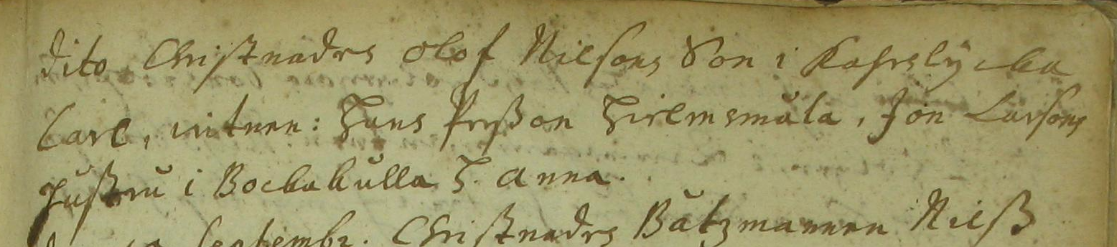 dito Christnades Olof Nilsons Son i Kahrslycka
Carl, witnen: Hans Perßon Hielmsmåla, Jon Larsons
Hustru i Bockabulla H. Anna.
Septembr. Christnades Båtzmannen Nilß